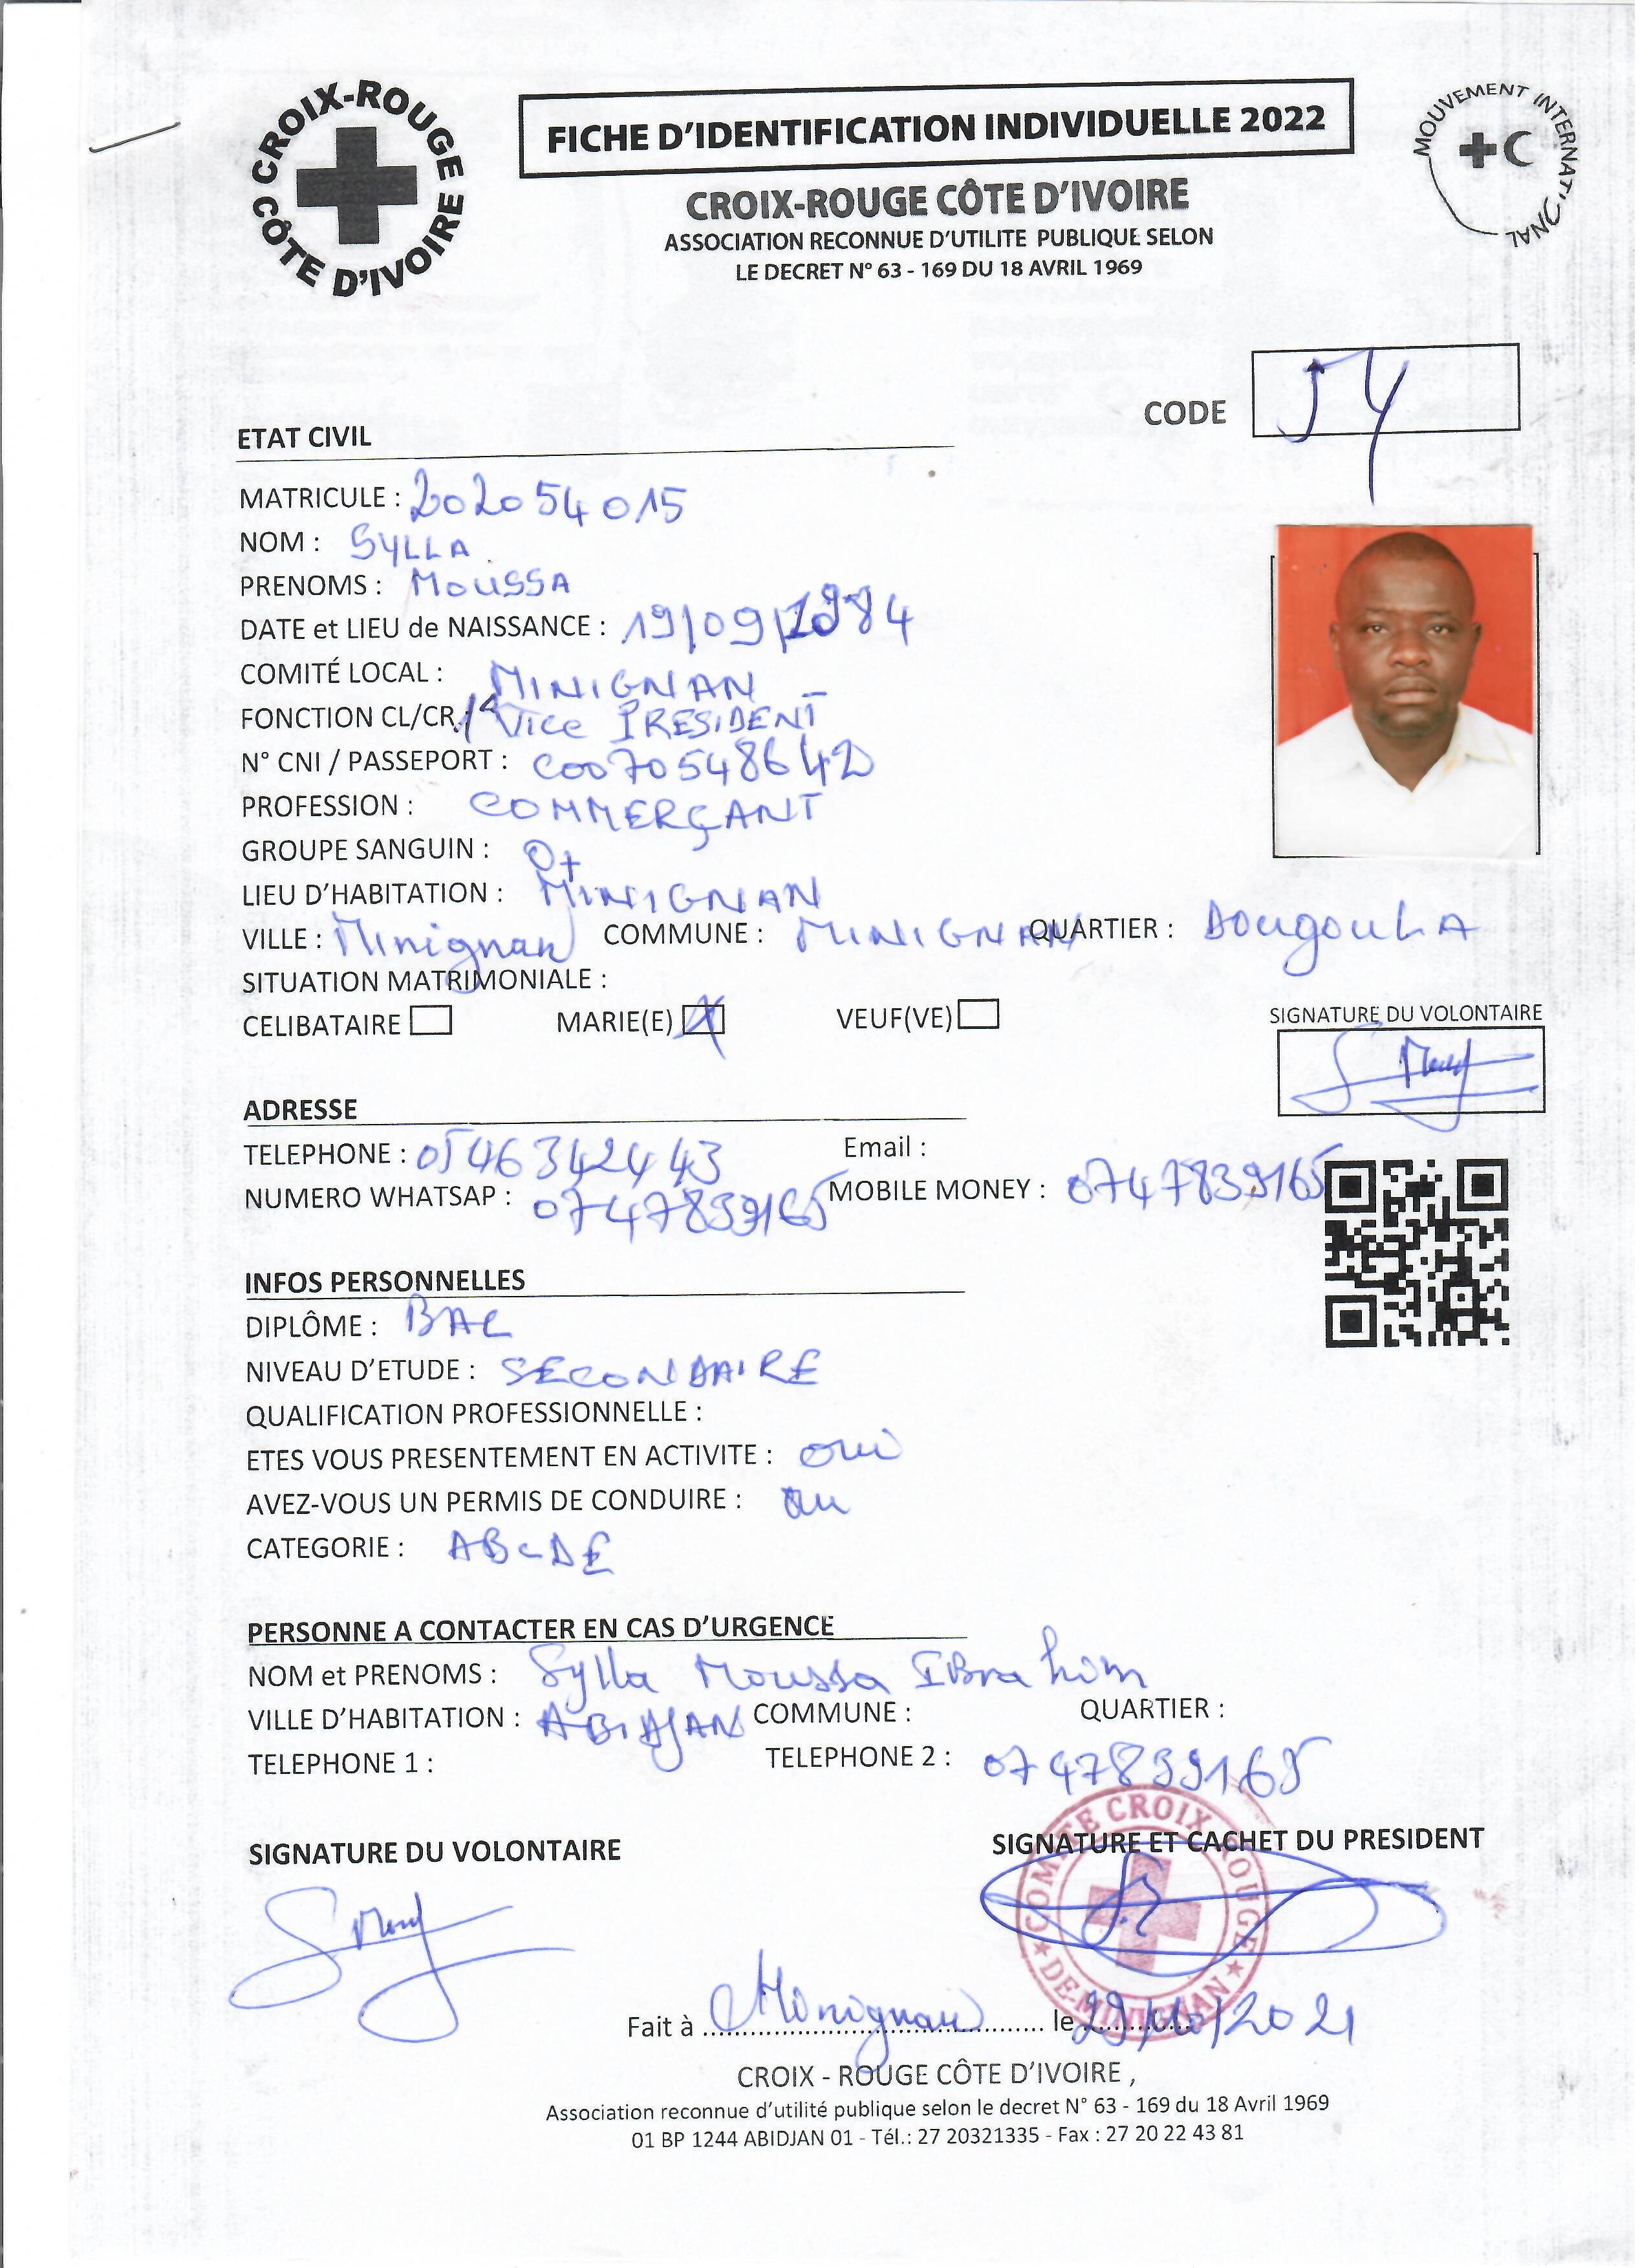 CROIX-ROUGE CÔTE D'IVOIRE
FICHE D'IDENTIFICATION INDIVIDUELLE 2022
MOUVEMENT INTERNATIONAL
CROIX-ROUGE CÔTE D'IVOIRE
ASSOCIATION RECONNUE D'UTILITE PUBLIQUE SELON
LE DECRET N° 63 - 169 DU 18 AVRIL 1969
CODE 54
ETAT CIVIL
MATRICULE : 202054015
NOM : SYLLA
PRENOMS : MOUSSA
DATE et LIEU de NAISSANCE : 19/09/1984
COMITÉ LOCAL : MINIGNAN
FONCTION CL/CR : 1e Vice PRESIDENT
N° CNI / PASSEPORT : C0070548642
PROFESSION : COMMERÇANT
GROUPE SANGUIN : O+
LIEU D'HABITATION : MINIGNAN
VILLE : Minignan COMMUNE : MINIGNAN QUARTIER : DougouLA
SITUATION MATRIMONIALE :
CELIBATAIRE MARIE(E) X VEUF(VE)
SIGNATURE DU VOLONTAIRE
ADRESSE
TELEPHONE : 0546342443 Email :
NUMERO WHATSAP : 0747839165 MOBILE MONEY : 0747839165
INFOS PERSONNELLES
DIPLÔME : BAC
NIVEAU D'ETUDE : SECONDAIRE
QUALIFICATION PROFESSIONNELLE :
ETES VOUS PRESENTEMENT EN ACTIVITE : oui
AVEZ-VOUS UN PERMIS DE CONDUIRE :
CATEGORIE : ABCDE
PERSONNE A CONTACTER EN CAS D'URGENCE
NOM et PRENOMS : Sylla Moussa IBrahim
VILLE D'HABITATION : ABIDJAN COMMUNE : QUARTIER :
TELEPHONE 1 : TELEPHONE 2 : 0747839165
SIGNATURE DU VOLONTAIRE SIGNATURE ET CACHET DU PRESIDENT
COMITE CROIX ROUGE
DE MINIGNAN
Fait à Minignan le 29/10/2021
CROIX - ROUGE CÔTE D'IVOIRE ,
Association reconnue d'utilité publique selon le decret N° 63 - 169 du 18 Avril 1969
01 BP 1244 ABIDJAN 01 - Tél.: 27 20321335 - Fax : 27 20 22 43 81